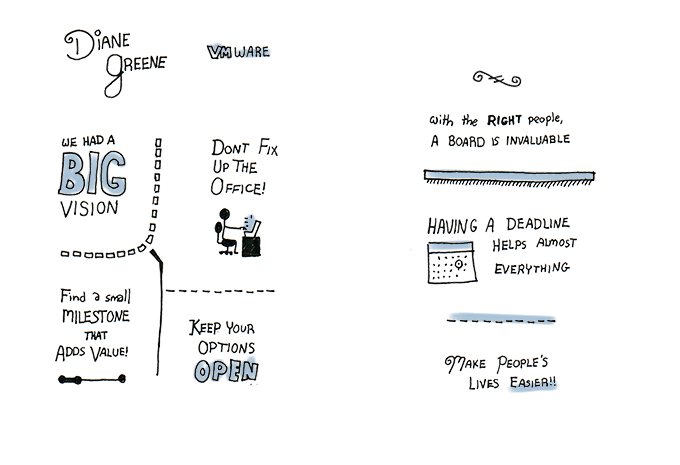 DIANE
GREENE
VMWARE
WE HAD A
BIG
VISION
DONT FIX
UP THE
OFFICE!
Find a small
MILESTONE
THAT
ADDS VALUE!
KEEP YOUR
OPTIONS
OPEN
with the RIGHT people,
A BOARD IS INVALUABLE
HAVING A DEADLINE
HELPS ALMOST
EVERYTHING
MAKE PEOPLE'S
LIVES EASIER!!